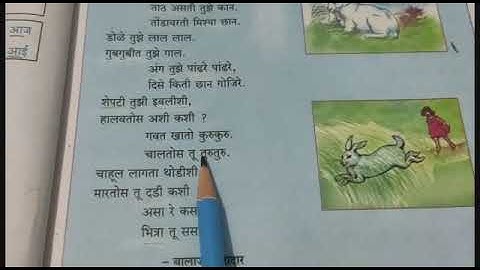 आज
आई
ताठ असती तुझे कान.
तोंडावरती मिश्या छान.
डोळे तुझे लाल लाल.
गुबगुबीत तुझे गाल.
अंग तुझे पांढरे पांढरे,
दिसे किती छान गोजिरे.
शेपटी तुझी इवलीशी,
हालवतोस अशी कशी ?
गवत खातो कुरुकुरु.
चालतोस तू तुरुतुरु.
चाहूल लागता थोडीशी
मारतोस तू दडी कशी
असा रे कस
भित्रा तू सस